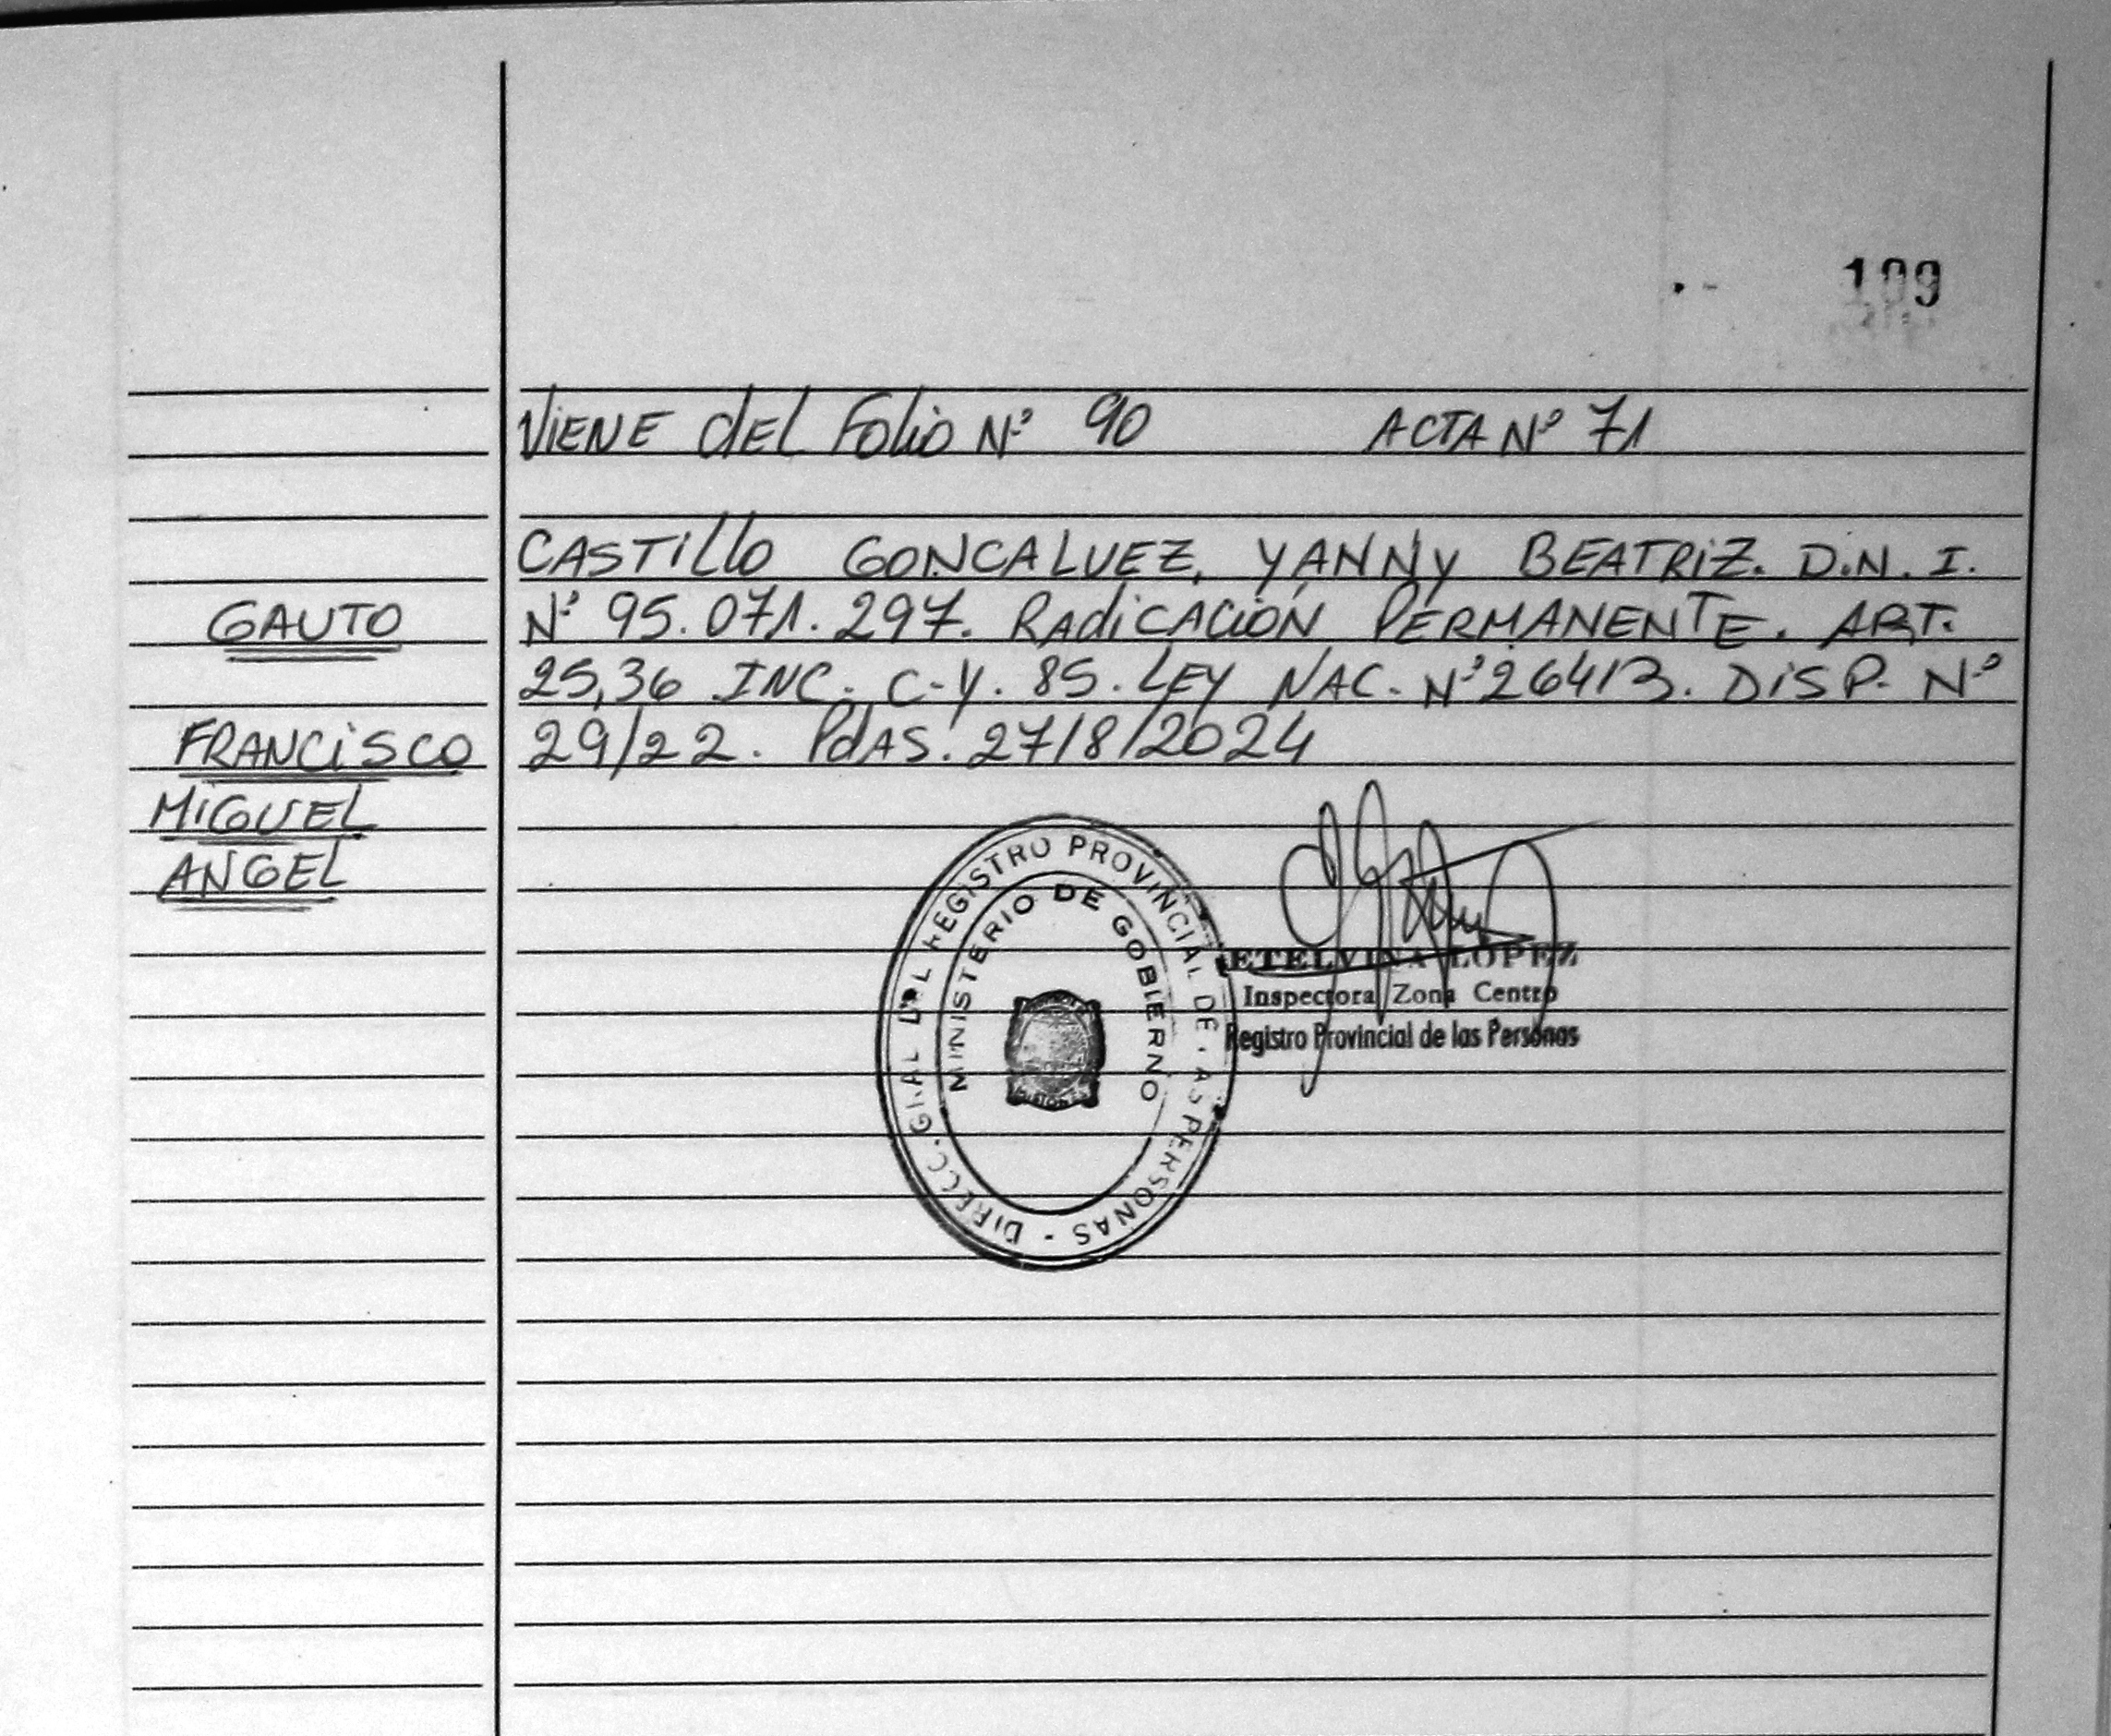 109
VIENE DEL FOLIO Nº 90 ACTA Nº 71
CASTILLO GONCALVEZ, YANNY BEATRIZ. D.N.I.
GAUTO
Nº 95.071.297. RADICACIÓN PERMANENTE. ART.
25,36 INC. C-Y. 85. LEY NAC. Nº 26413. DISP. Nº
FRANCISCO
29/22. PDAS. 27/8/2024
MIGUEL
ANGEL
DIRECC. GRAL DEL REGISTRO PROVINCIAL DE LAS PERSONAS -
MINISTERIO DE GOBIERNO
MISIONES
ETELVINA LOPEZ
Inspectora Zona Centro
Registro Provincial de las Personas